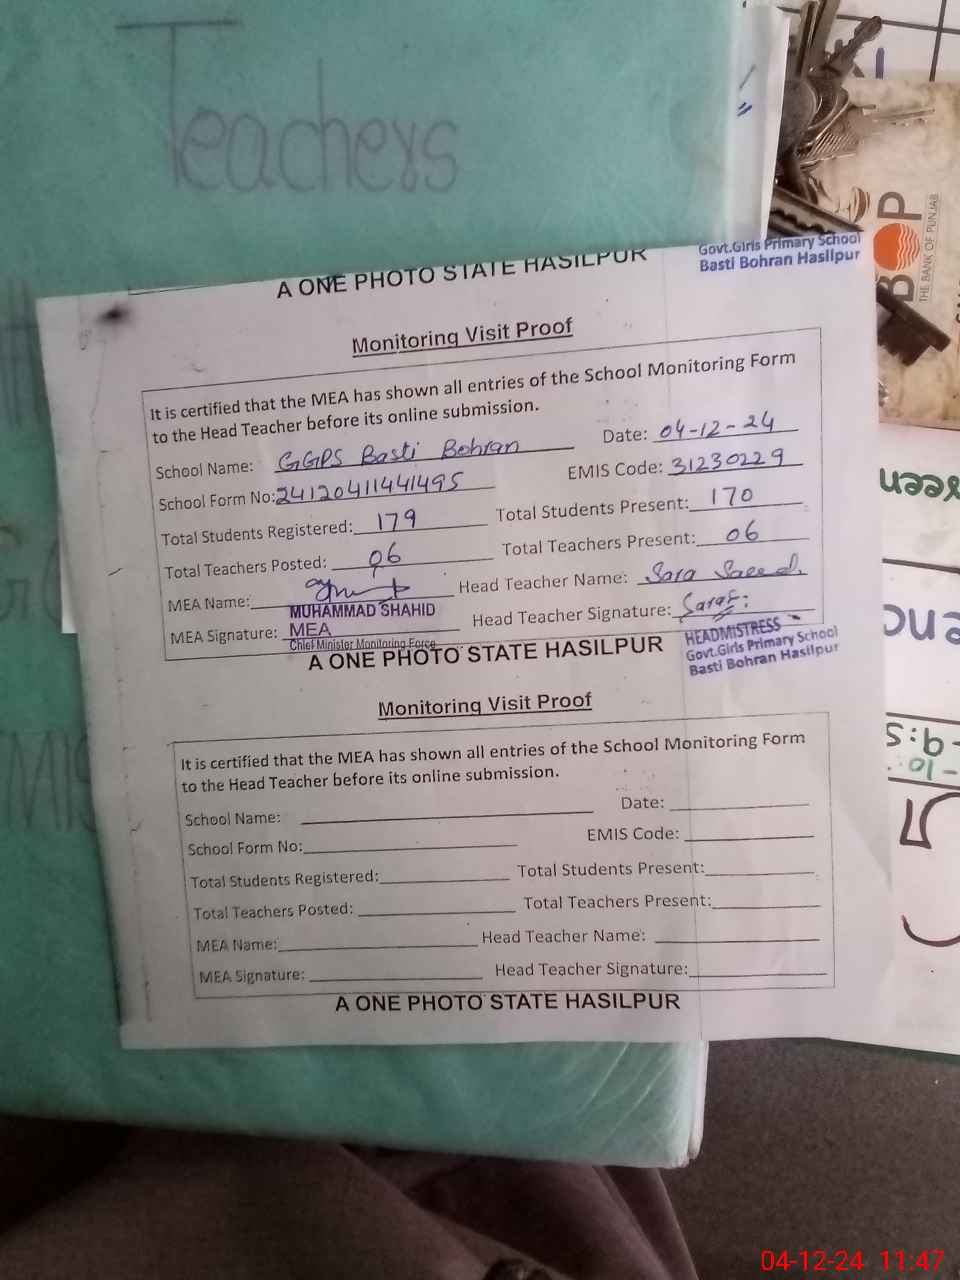 Teachers
BOP
THE BANK OF PUNJAB
Govt.Girls Primary School
Basti Bohran Hasilpur
A ONE PHOTO STATE HASILPUR
Monitoring Visit Proof
It is certified that the MEA has shown all entries of the School Monitoring Form
to the Head Teacher before its online submission.
School Name: GGPS Basti Bohran Date: 04-12-24
School Form No: 24120411441495 EMIS Code: 31230229
Total Students Registered: 179 Total Students Present: 170
Total Teachers Posted: 06 Total Teachers Present: 06
MEA Name: Head Teacher Name: Sara Saeed
MUHAMMAD SHAHID
MEA Signature: MEA Head Teacher Signature:
Chief Minister Monitoring Force
HEADMISTRESS
Govt.Girls Primary School
Basti Bohran Hasilpur
A ONE PHOTO STATE HASILPUR
Monitoring Visit Proof
It is certified that the MEA has shown all entries of the School Monitoring Form
to the Head Teacher before its online submission.
School Name: Date:
School Form No: EMIS Code:
Total Students Registered: Total Students Present:
Total Teachers Posted: Total Teachers Present:
MEA Name: Head Teacher Name:
MEA Signature: Head Teacher Signature:
A ONE PHOTO STATE HASILPUR
04-12-24 11:47